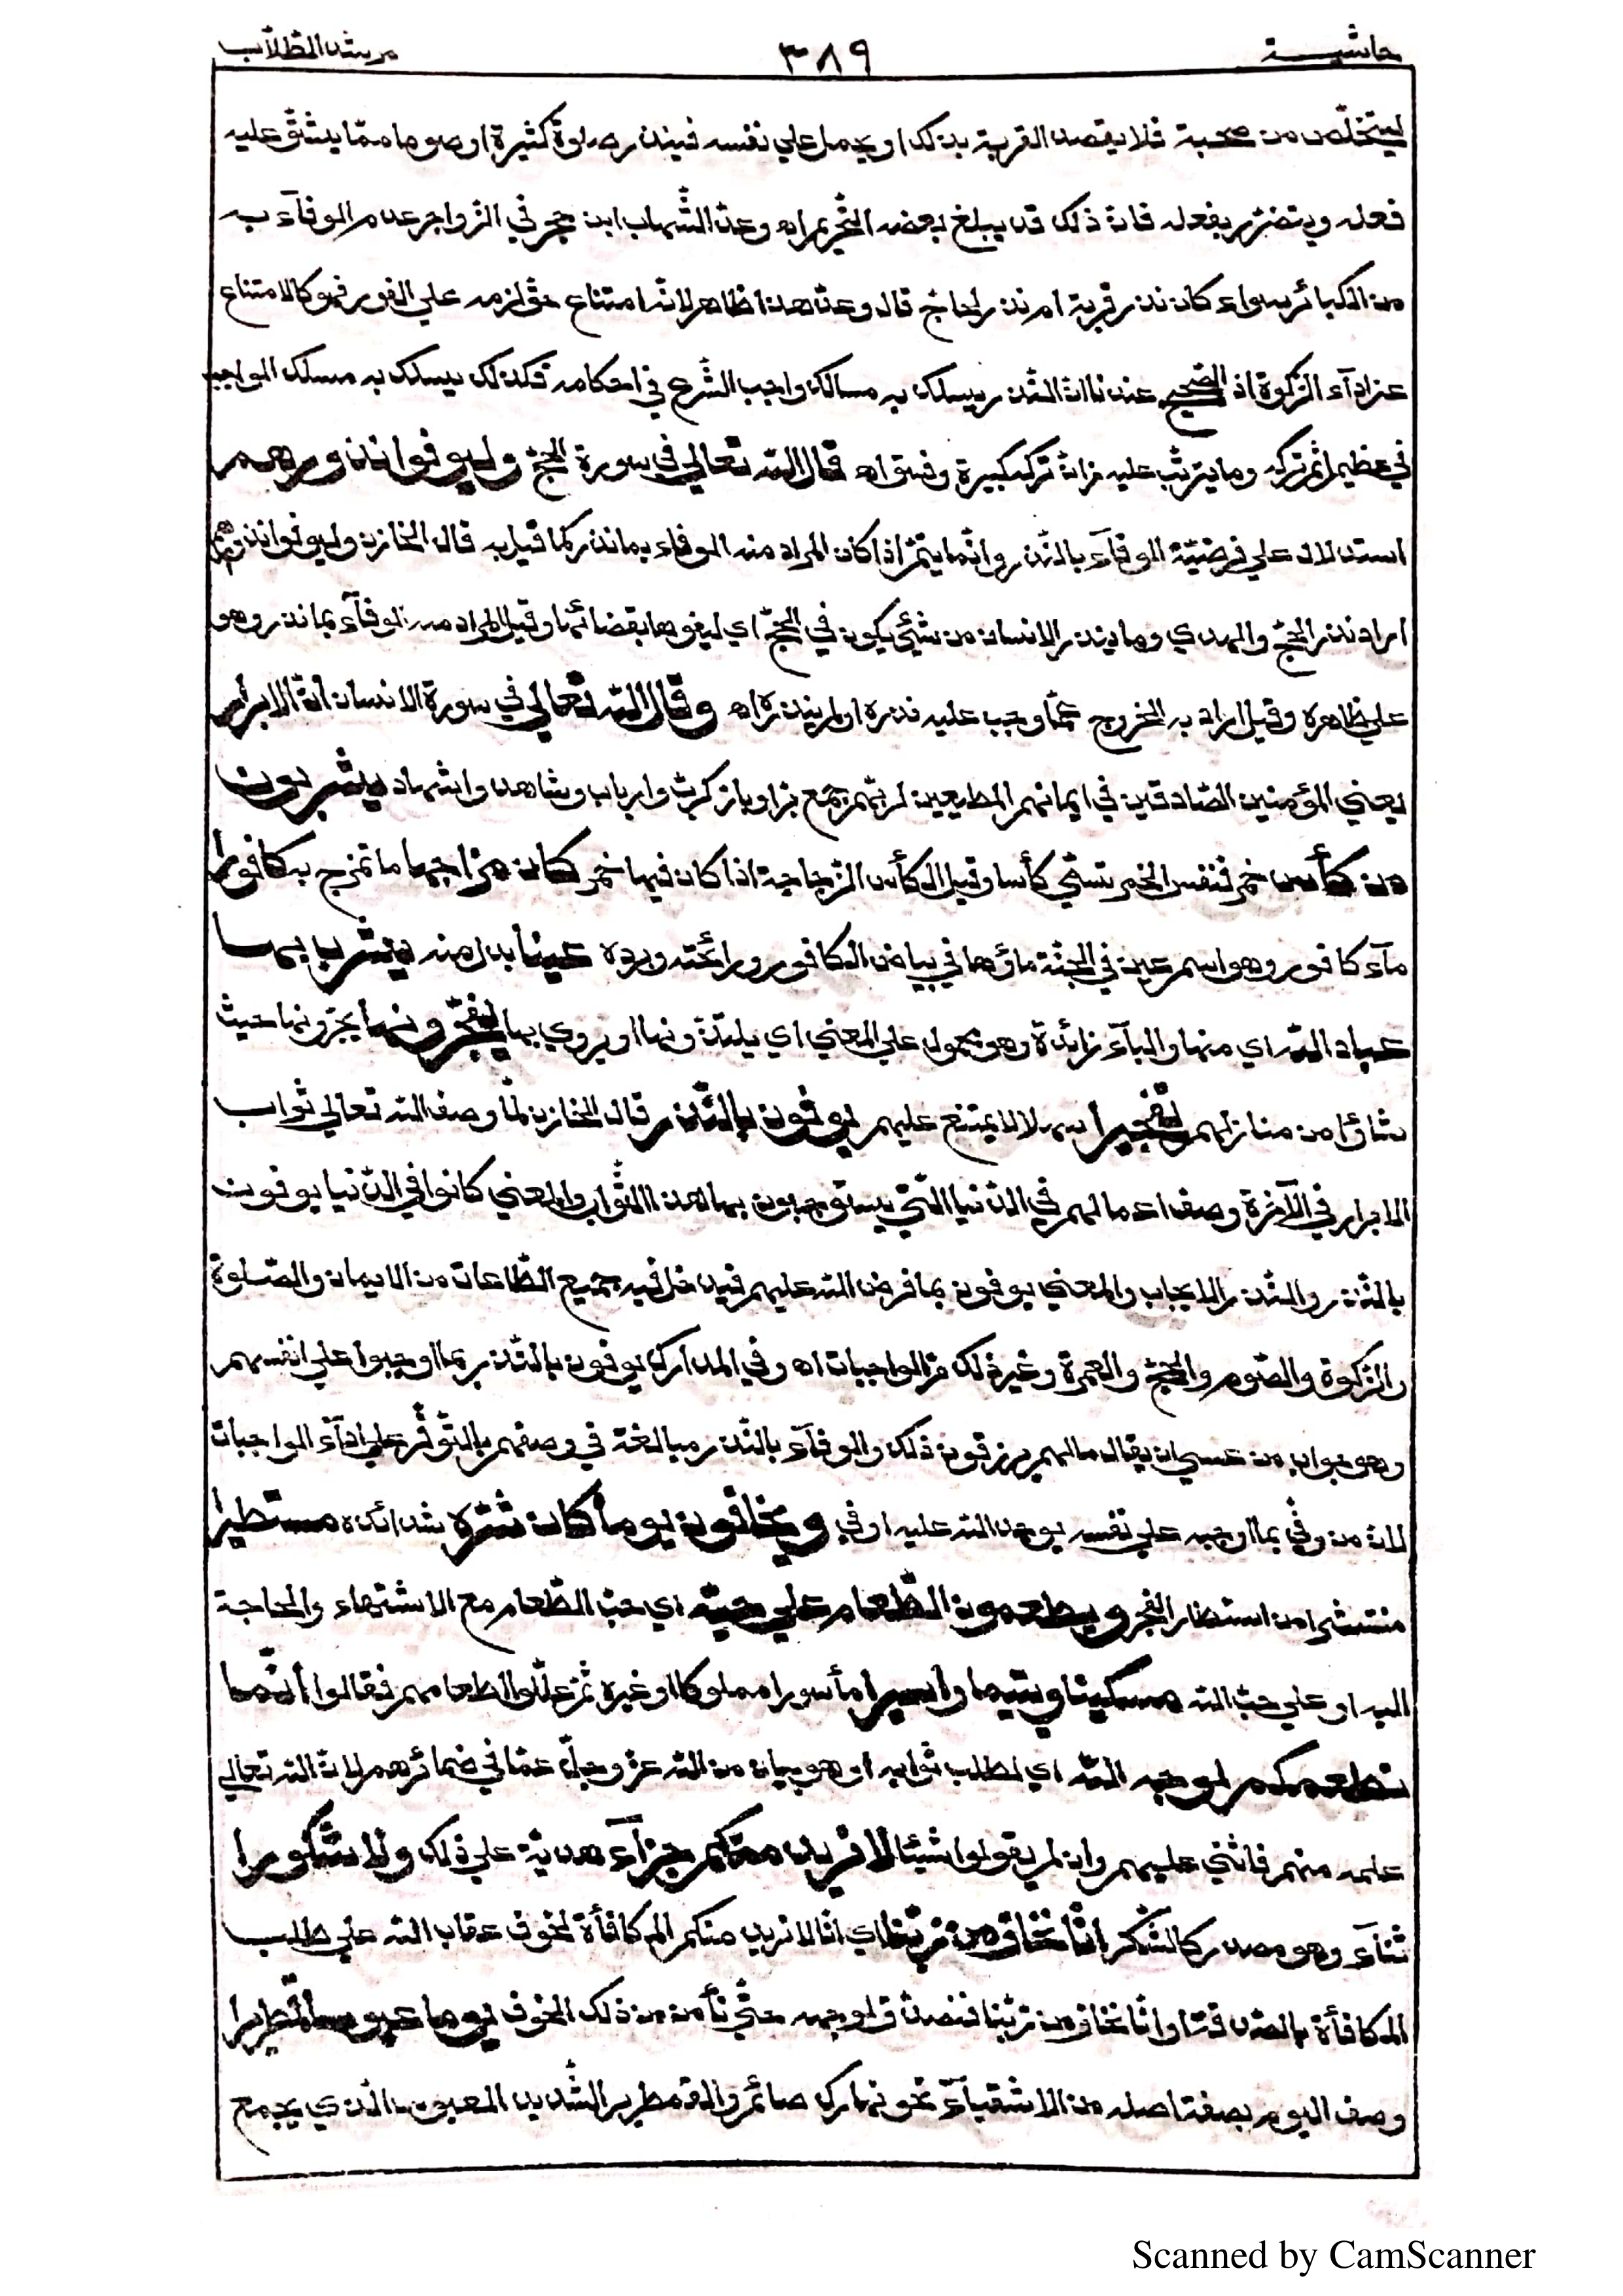 حاشية ٣٨٩ مرشد الطلاب
ليتخلّص من صحبة فلا يقصد القربة بذلك او يحمل علي نفسه فينذر صلوة كثيرة او صوما ممّا يشقّ عليه
فعله ويتضرّر بفعله فانّ ذلك قد يبلغ بعضه التّحريم اه وعدّ الشّهاب ابن حجر في الزّواجر عدم الوفآء به
من الكبائر سواء كان نذر قربة ام نذر لجاج قال وعدّ هذا ظاهر لانّه امتناع حقّ لزمه علي الفور فهو كالامتناع
عن ادآء الزّكوة اذ الصّحيح عندنا انّ النّذر يسلك به مسالك واجب الشّرع في احكامه فكذلك يسلك به مسلك الواجب
في عظيم اثم تركه وما يترتّب عليه من انّ تركه كبيرة وفسق اه قال اللّه تعالي في سورة الحجّ وليوفوا نذورهم
استدلال علي فرضيّة الوفآء بالنّذر وانّما يتمّ اذا كان المراد منه الوفاء بما نذر كما قيل به قال الخازن وليوفوا نذورهم
اراد نذر الحجّ والهدي وما ينذر الانسان من شيئ يكون في الحجّ اي ليفوها بقضائها وقيل المراد منه الوفآء بما نذر وهو
علي ظاهره وقيل اراد به الخروج عمّا وجب عليه نذره او لم ينذره اه وقال اللّه تعالي في سورة الانسان انّ الابرار
يعني المؤمنين الصّادقين في ايمانهم المطيعين لربّهم جمع برّ او بارّ كربّ وارباب وشاهد واشهاد يشربون
من كأس خمر فنفس الخمر تسمّي كأسا وقيل الكأس الزّجاجة اذا كان فيها خمر كان مزاجها ما تمزج به كافورا
مآء كافور وهو اسم عين في الجنّة ماؤها في بياض الكافور ورائحته وبرده عينا بدل منه يشرب بها
عباد اللّه اي منها والبآء زائدة وهو محمول علي المعني اي يلتذّونها او يروي بها يفجّرونها يجرونها حيث
شاؤا من منازلهم تفجيرا سهلا لا يمتنع عليهم يوفون بالنّذر قال الخازن لمّا وصف اللّه تعالي ثواب
الابرار في الآخرة وصف اعمالهم في الدّنيا الّتي يستوجبون بها هذا الثّواب والمعني كانوا في الدّنيا يوفون
بالنّذر والنّذر الايجاب والمعني يوفون بما فرض اللّه عليهم فيدخل فيه جميع الطّاعات من الايمان والصّلوة
والزّكوة والصّوم والحجّ والعمرة وغير ذلك من الواجبات اه وفي المدارك يوفون بالنّذر بما اوجبوا علي انفسهم
وهو جواب من عسي ان يقال ما لهم يرزقون ذلك والوفآء بالنّذر مبالغة في وصفهم بالتّوفّر علي ادآء الواجبات
لانّ من وفّي بما اوجبه علي نفسه لوجه اللّه عليه اوفي ويخافون يوما كان شرّه شدائده مستطيرا
منتشرا من استطار الفجر ويطعمون الطّعام علي حبّه اي حبّ الطّعام مع الاشتهاء والحاجة
اليه او علي حبّ اللّه مسكينا ويتيما واسيرا مأسورا مملوكا او غيره ثمّ علّلوا اطعامهم فقالوا انّما
نطعمكم لوجه اللّه اي لطلب ثوابه او هو بيان من اللّه عزّ وجلّ عمّا في ضمائرهم لانّ اللّه تعالي
علمه منهم فاثني عليهم وان لم يقولوا شيئا لا نريد منكم جزآء هديّة علي ذلك ولا شكورا
ثنآء وهو مصدر كالشّكر انّا نخاف من ربّنا اي انّا لا نريد منكم المكافأة لخوف عقاب اللّه علي طلب
المكافأة بالصّدقة او انّا نخاف من ربّنا فنصدّق لوجهه حتّي نأمن من ذلك الخوف يوما عبوسا قمطريرا
وصف اليوم بصفة اصله من الاشقيآء نحو نهارك صائم والقمطرير الشّديد العبوس الّذي يجمع
Scanned by CamScanner